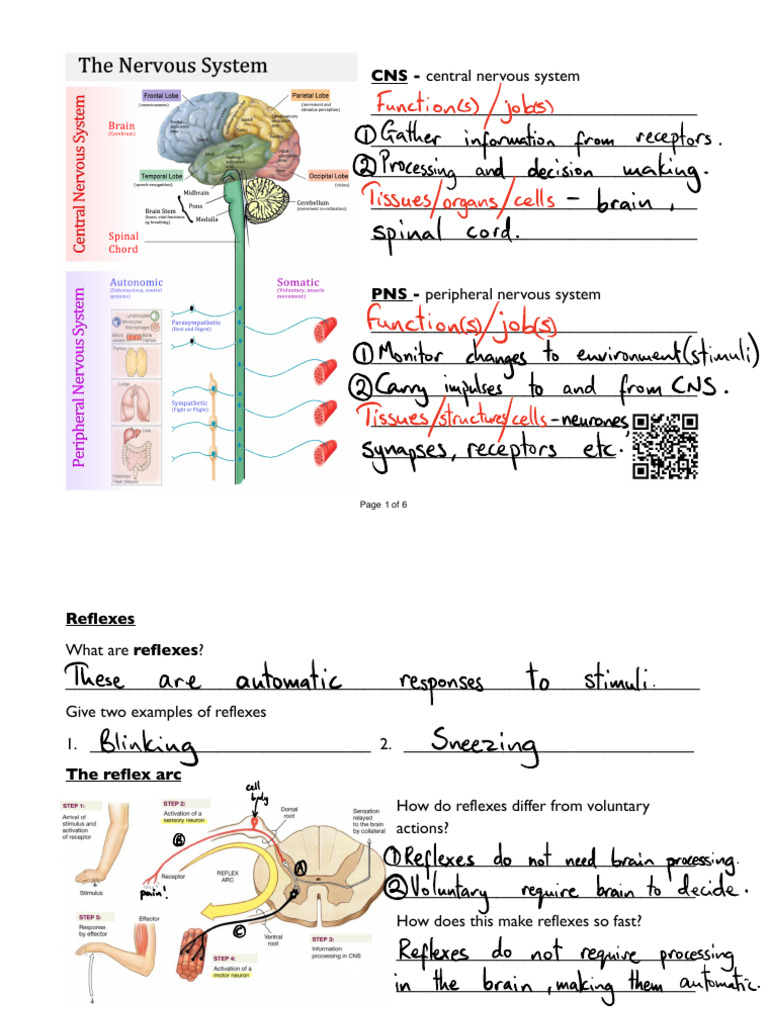 The Nervous System
Central Nervous System
Frontal Lobe
(consciousness)
Parietal Lobe
(movement and
stimulus perception)
Brain
(Cerebrum)
Temporal Lobe
(speech recognition)
Occipital Lobe
(vision)
Midbrain
Pons
Medulla
Brain Stem
Cerebellum
(movement co-ordination)
Spinal
Chord
Peripheral Nervous System
Autonomic
(Subconscious, control
systems)
Somatic
(Voluntary, muscle
movement)
Parasympathetic
(Rest and Digest)
Sympathetic
(Fight or Flight)
Lymphocytes
Monocytes
Macrophages
Thymus
Lungs
Liver
CNS - central nervous system
Function(s) / job(s)
① Gather information from receptors.
② Processing and decision making.
Tissues/organs/cells - brain,
spinal cord.
PNS - peripheral nervous system
Function(s)/job(s)
① Monitor changes to environment (stimuli)
② Carry impulses to and from CNS.
Tissues/structures/cells - neurones,
synapses, receptors etc.
Page 1 of 6
Reflexes
What are reflexes?
These are automatic responses to stimuli.
Give two examples of reflexes
1. Blinking 2. Sneezing
The reflex arc
STEP 1:
Arrival of
stimulus and
activation
of receptor
Stimulus
STEP 2:
Activation of a
sensory neuron
cell
body
Dorsal
root
Sensation
relayed to
the brain
by collateral
B
A
Receptor
pain!
REFLEX
ARC
C
STEP 5:
Response
by effector
Effector
Ventral
root
STEP 3:
Information
processing in CNS
STEP 4:
Activation of a
motor neuron
How do reflexes differ from voluntary
actions?
① Reflexes do not need brain processing.
② Voluntary require brain to decide.
How does this make reflexes so fast?
Reflexes do not require processing
in the brain, making them automatic.